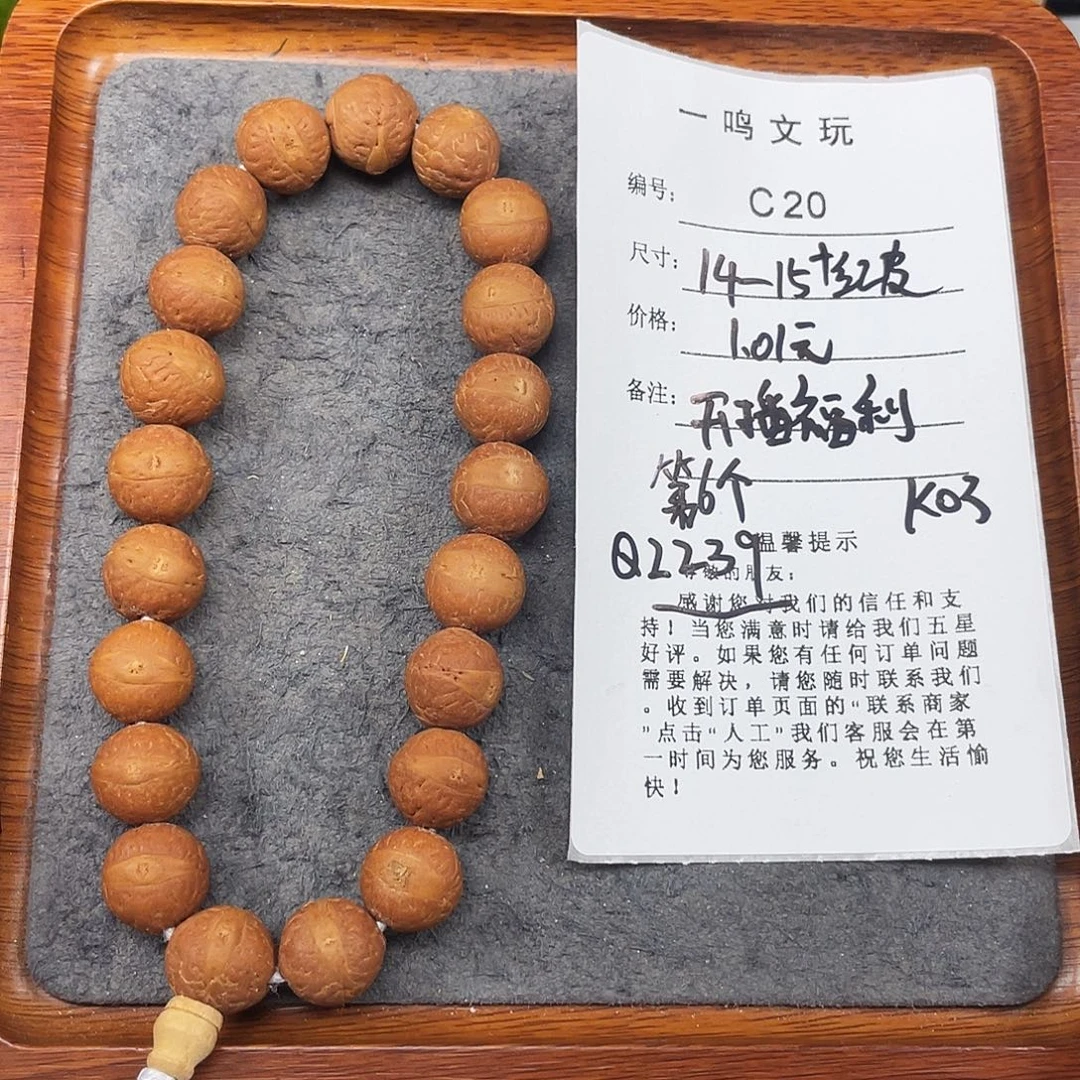 一鸣文玩
编号: C20
尺寸: 14-15+红皮
价格: 1.01元
备注: 开播福利
第6个
K03
Q2239
温馨提示
尊敬的朋友:
感谢您对我们的信任和支
持!当您满意时请给我们五星
好评。如果您有任何订单问题
需要解决,请您随时联系我们
。收到订单页面的“联系商家
”点击“人工”我们客服会在第
一时间为您服务。祝您生活愉
快!